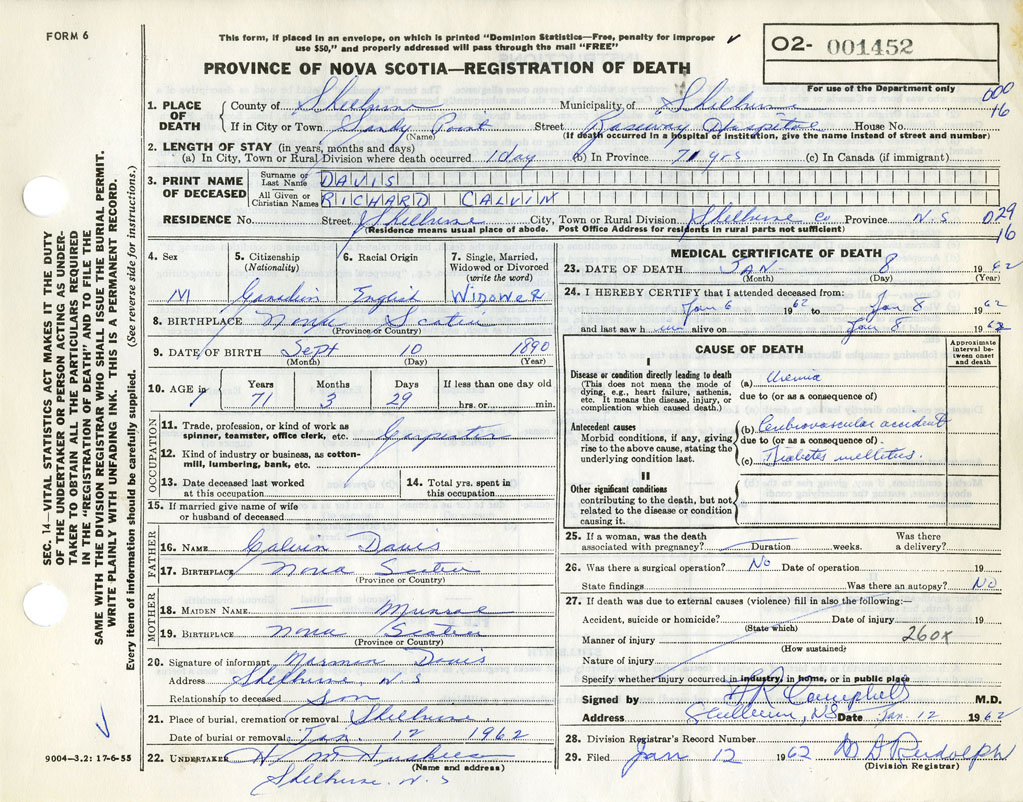 FORM 6
This form, if placed in an envelope, on which is printed "Dominion Statistics—Free, penalty for improper
use $50," and properly addressed will pass through the mail "FREE"
✓
O2- 001452
PROVINCE OF NOVA SCOTIA—REGISTRATION OF DEATH
For use of the Department only
000
16
1. PLACE OF DEATH
County of Shelburne Municipality of Shelburne
If in City or Town Sandy Point Street Roseway Hospital House No.
(Name) (If death occurred in a hospital or institution, give the name instead of street and number)
2. LENGTH OF STAY (in years, months and days)
(a) In City, Town or Rural Division where death occurred 1 day (b) In Province 71 yrs (c) In Canada (if immigrant)
3. PRINT NAME OF DECEASED
Surname or Last Name DAVIS
All Given or Christian Names RICHARD CALVIN
RESIDENCE No. Street Shelburne City, Town or Rural Division Shelburne Co Province N.S 029
16
(Residence means usual place of abode. Post Office Address for residents in rural parts not sufficient)
4. Sex 5. Citizenship (Nationality) 6. Racial Origin 7. Single, Married, Widowed or Divorced (write the word)
M Canadian English WIDOWER
8. BIRTHPLACE Nova Scotia
(Province or Country)
9. DATE OF BIRTH Sept 10 1890
(Month) (Day) (Year)
10. AGE in Years Months Days If less than one day old
71 3 29 hrs. or min.
OCCUPATION
11. Trade, profession, or kind of work as
spinner, teamster, office clerk, etc. Carpenter
12. Kind of industry or business, as cotton-
mill, lumbering, bank, etc.
13. Date deceased last worked
at this occupation
14. Total yrs. spent in
this occupation
15. If married give name of wife
or husband of deceased
FATHER
16. NAME Calvin Davis
17. BIRTHPLACE Nova Scotia
(Province or Country)
MOTHER
18. MAIDEN NAME — Munroe
19. BIRTHPLACE Nova Scotia
(Province or Country)
20. Signature of informant Davis
Address Shelburne, N.S
Relationship to deceased son
21. Place of burial, cremation or removal Shelburne.
Date of burial or removal Jan. 12 1962
22. UNDERTAKER H M
(Name and address)
Shelburne N.S
MEDICAL CERTIFICATE OF DEATH
23. DATE OF DEATH JAN 8 1962
(Month) (Day) (Year)
24. I HEREBY CERTIFY that I attended deceased from:
Jan 6 1962 to Jan 8 1962
and last saw him alive on Jan 8 1962
CAUSE OF DEATH
Approximate interval between onset and death
I
Disease or condition directly leading to death
(This does not mean the mode of
dying, e.g., heart failure, asthenia,
etc. It means the disease, injury, or
complication which caused death.)
(a) Uremia
due to (or as a consequence of)
Antecedent causes
Morbid conditions, if any, giving
rise to the above cause, stating the
underlying condition last.
(b) Cerebrovascular accident
due to (or as a consequence of)
(c) Diabetes mellitus.
II
Other significant conditions
contributing to the death, but not
related to the disease or condition
causing it.
25. If a woman, was the death Was there
associated with pregnancy? Duration weeks. a delivery?
26. Was there a surgical operation? No Date of operation 19
State findings Was there an autopsy? No
27. If death was due to external causes (violence) fill in also the following:—
Accident, suicide or homicide? Date of injury 19
(State which)
Manner of injury 260x
(How sustained)
Nature of injury
Specify whether injury occurred in industry, in home, or in public place
Signed by A R Campbell M.D.
Address Shelburne, NS Date Jan. 12 1962
28. Division Registrar's Record Number
29. Filed Jan 12 1962 M D Rudolph
(Division Registrar)
SEC. 14—VITAL STATISTICS ACT MAKES IT THE DUTY
OF THE UNDERTAKER OR PERSON ACTING AS UNDER-
TAKER TO OBTAIN ALL THE PARTICULARS REQUIRED
IN THE "REGISTRATION OF DEATH" AND TO FILE THE
SAME WITH THE DIVISION REGISTRAR WHO SHALL ISSUE THE BURIAL PERMIT.
WRITE PLAINLY WITH UNFADING INK. THIS IS A PERMANENT RECORD.
Every item of information should be carefully supplied. (See reverse side for instructions.)
✓
9004—3.2: 17-6-55